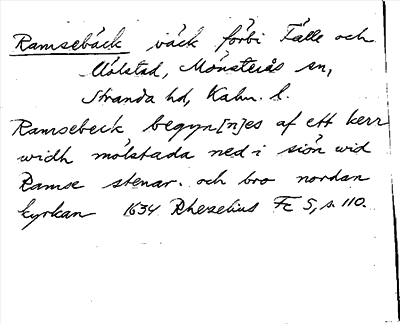 Ramsebäck bäck förbi Fälle och
Mölstad, Mönsterås sn,
Stranda hd, Kalm. l.
Ramsebeck begyn[n]es af ett kerr
widh mölstada ned i siön wid
Ramse stenar. och bro nordan
kyrkan 1634 Rhezelius Fc 5, s. 110.